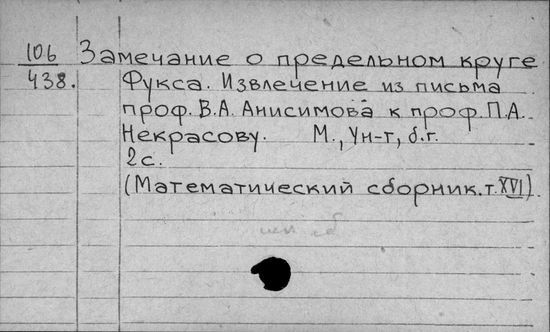 106 Замечание о предельном круге
438. Фукса. Извлечение из письма
проф. В.А. Анисимова к проф. П.А.
Некрасову. М., Ун-т, б.г.
2 с.
(Математический сборник. т. XVI).